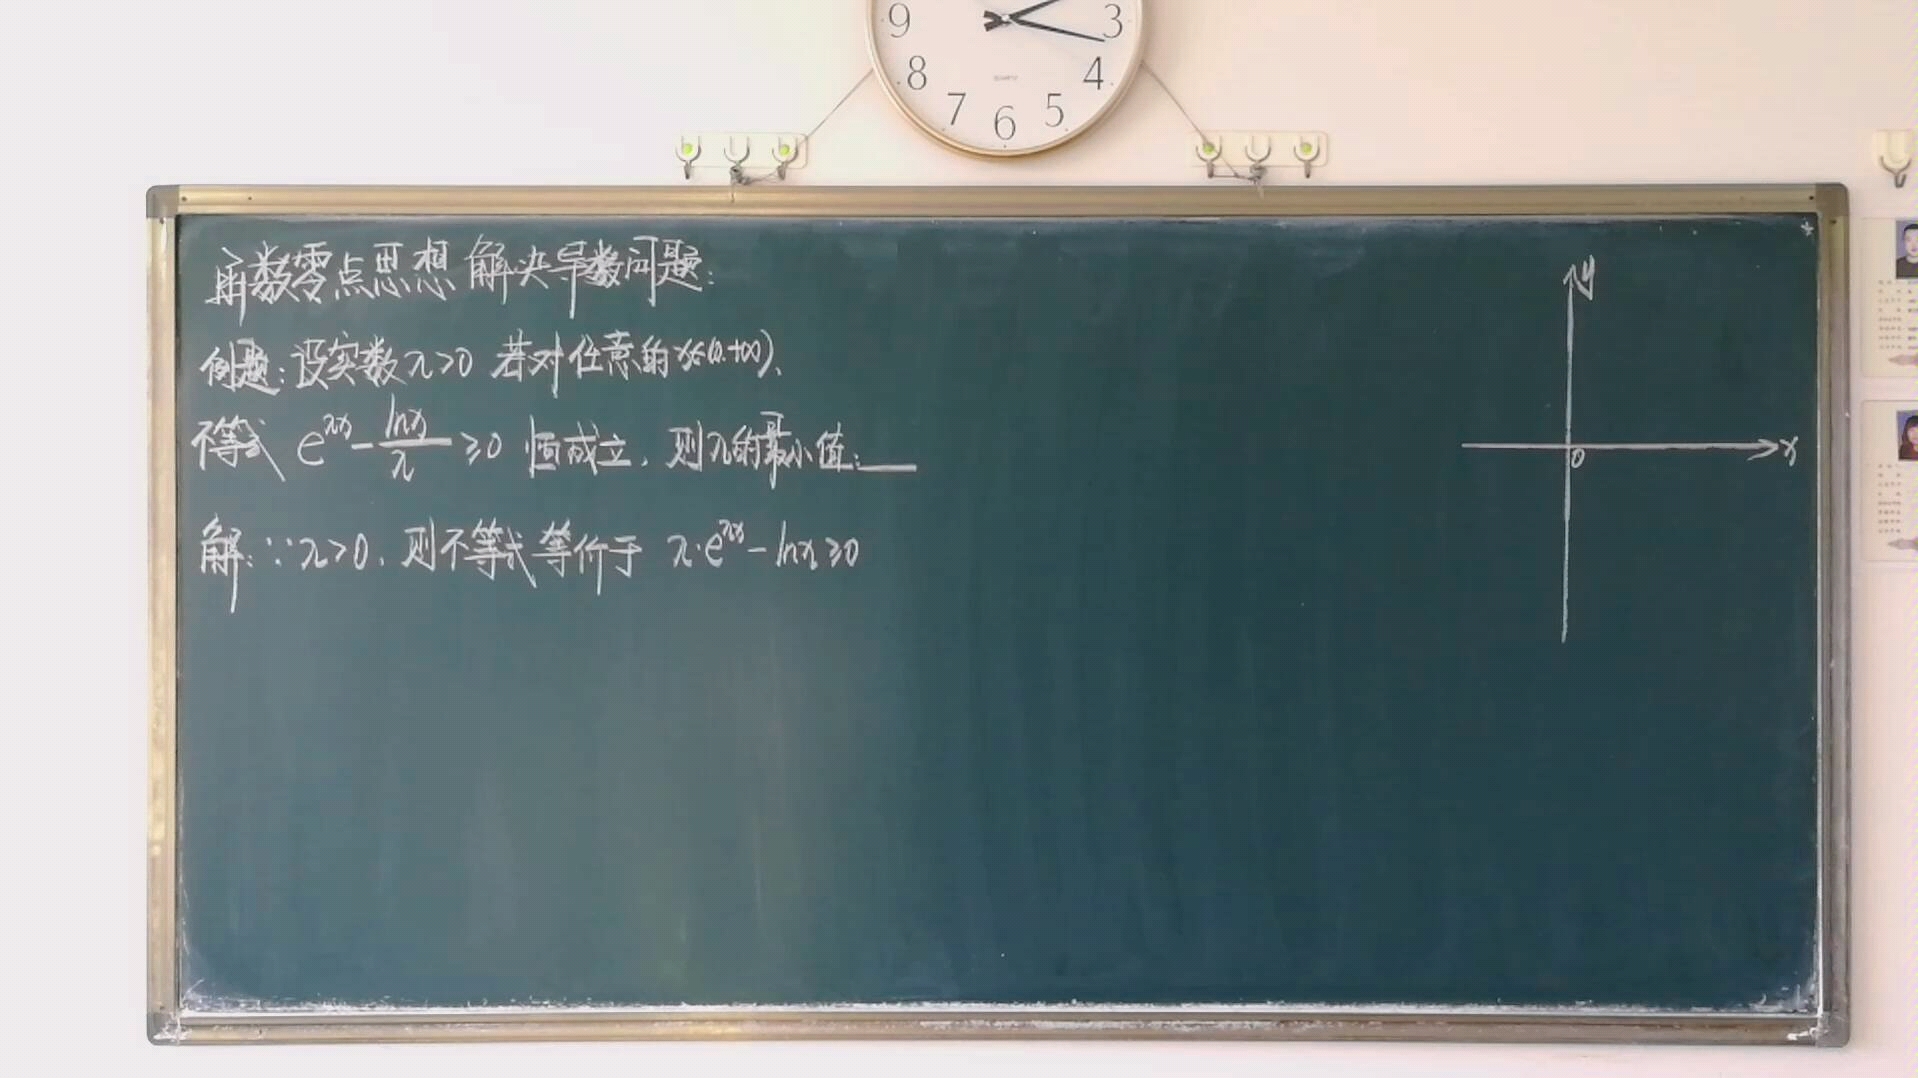 9 3
8 4
7 6 5
QUARTZ
函数零点思想 解决导数问题:
例题:设实数λ>0 若对任意的x∈(0,+∞),
不等式 e^{λx} - \frac{lnx}{λ} ≥0 恒成立,则λ的最小值:___
解:∵λ>0,则不等式等价于 λ·e^{λx} - lnx≥0
y
0 x